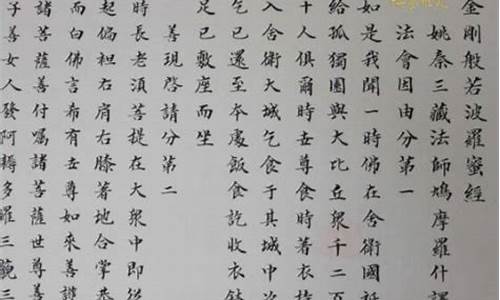 金剛般若波羅蜜經
姚秦三藏法師鳩摩羅什譯
法會因由分第一
如是我聞一時佛在舍衛國祇
給孤獨園與大比丘衆千二百
十人俱爾時世尊食時著衣
入舍衛大城乞食于其城中次
乞已還至本處飯食訖收衣鉢
足已敷座而坐
善現啓請分第二
時長老須菩提在大衆中即從
起偏袒右肩右膝著地合掌恭
而白佛言希有世尊如來善護
諸菩薩付囑諸菩薩世尊善
子善女人發阿耨多羅三藐三